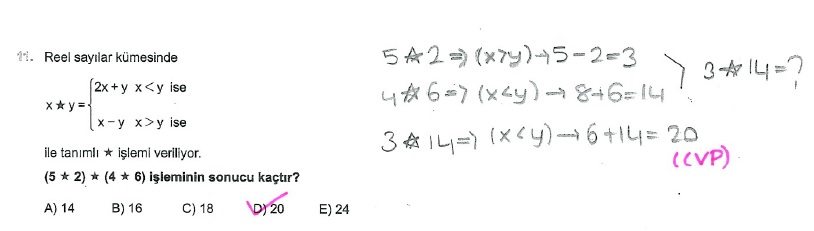 11. Reel sayılar kümesinde
x ★ y = { 2x + y  x < y  ise
x − y  x > y  ise
ile tanımlı ★ işlemi veriliyor.
(5 ★ 2) ★ (4 ★ 6) işleminin sonucu kaçtır?
A) 14 B) 16 C) 18 D) 20 E) 24
5 ☆ 2 => (x>y) → 5-2=3
4 ☆ 6 => (x<y) → 8+6=14
3 ☆ 14=?
3 ☆ 14 => (x<y) → 6+14= 20
(CVP)